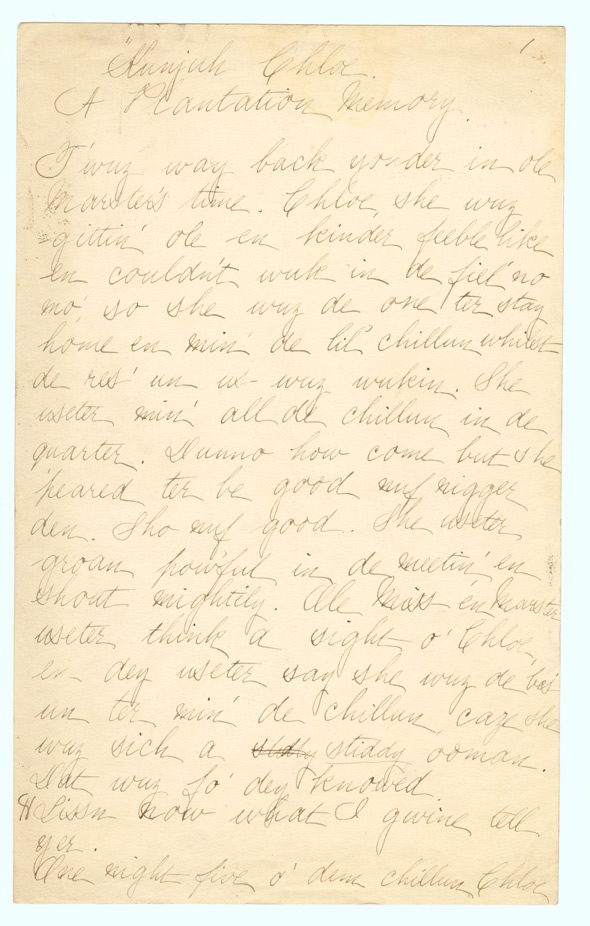 1
"Kunjuh Chloe.
A Plantation Memory.
T'wuz way back yonder in ole
Marster's time. Chloe, she wuz
gittin' ole en kinder feeble like
en couldn't wuk in de fiel' no
mo', so she wuz de one ter stay
home en min' de lil' chillun whilst
de res' un us wuz wukin. She
useter min' all de chillun in de
quarter. Dunno how come but she
'peared ter be good nuf nigger
den. Sho nuf good. She useter
groan pow'ful in de meetin' en
shout mightily. Ole Miss en Marster
useter think a sight o' Chloe,
en dey useter say she wuz de bes'
un ter min' de chillun, caze she
wuz sich a stiddy ooman.
Dat wuz fo' dey knowed.
Lissn now what I gwine tell
yer.
One night five o' dem chillun Chloe